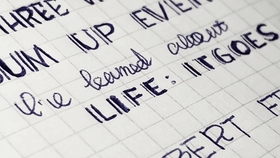 THREE W
SUM UP EVERY
I've learned about
LIFE: IT GOES
BERT F